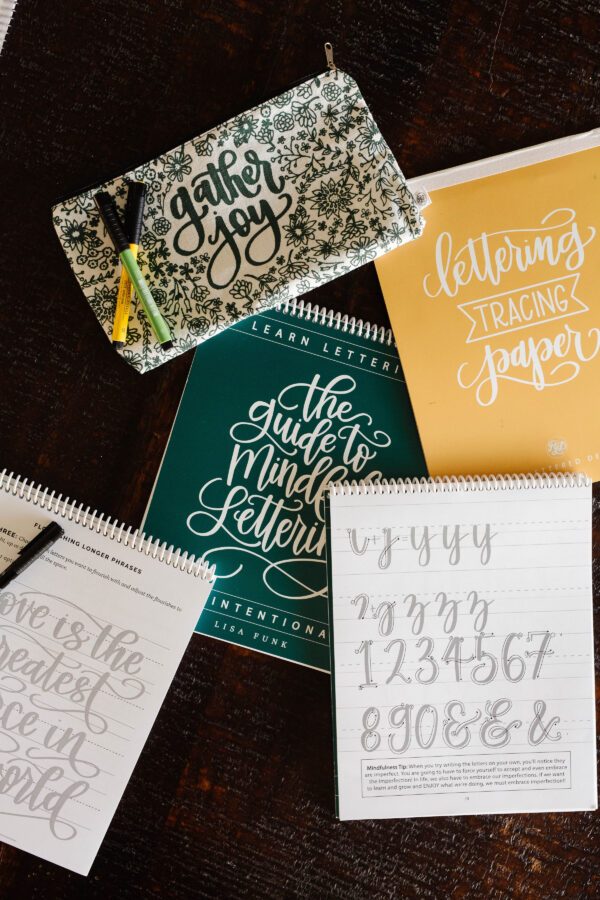 gather
joy
lettering
TRACING
paper
LEARN LETTERI
the
guide to
Mindf
Lettering
INTENTIONA
LISA FUNK
FL SHING LONGER PHRASES
letters you want to flourish with and adjust the flourishes to
the space.
ove is the
reatest
rce in
world
v+j y y y y
z z z
1 2 3 4 5 6 7
8 9 0 & & &
Mindfulness Tip: When you try writing the letters on your own, you'll notice they
are imperfect. You are going to have to force yourself to accept and even embrace
the imperfection! In life, we also have to embrace our imperfections. If we want
to learn and grow and ENJOY what we're doing, we must embrace imperfection!